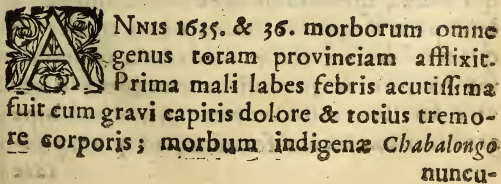 ANNIS 1635. & 36. morborum omne
genus totam provinciam afflixit.
Prima mali labes febris acutiſſima
fuit cum gravi capitis dolore & totius tremo-
re corporis; morbum indigenæ Chabalongo
nuncu-